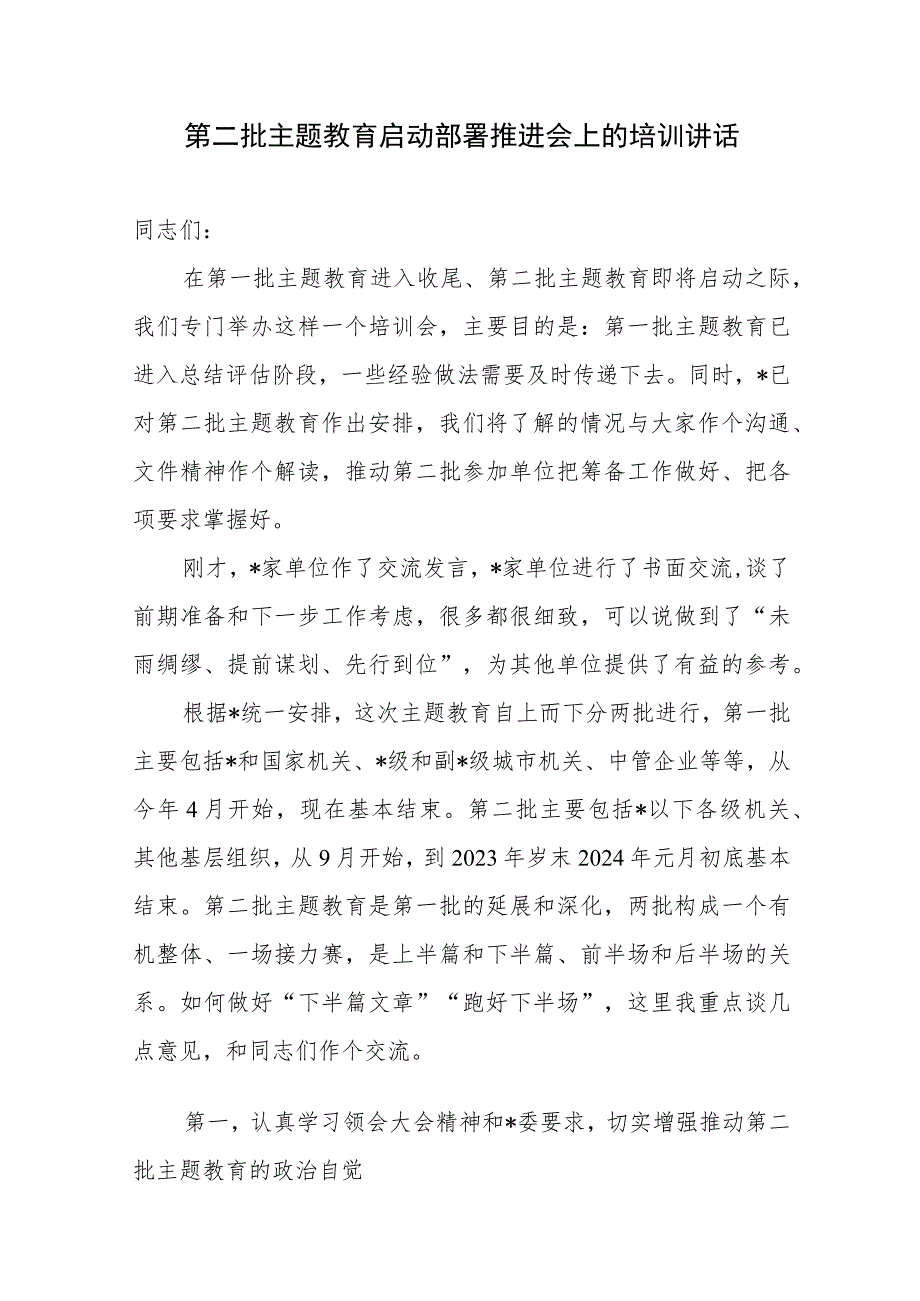 第二批主题教育启动部署推进会上的培训讲话
同志们：
在第一批主题教育进入收尾、第二批主题教育即将启动之际，
我们专门举办这样一个培训会，主要目的是：第一批主题教育已
进入总结评估阶段，一些经验做法需要及时传递下去。同时，*已
对第二批主题教育作出安排，我们将了解的情况与大家作个沟通、
文件精神作个解读，推动第二批参加单位把筹备工作做好、把各
项要求掌握好。
刚才，*家单位作了交流发言，*家单位进行了书面交流,谈了
前期准备和下一步工作考虑，很多都很细致，可以说做到了“未
雨绸缪、提前谋划、先行到位”，为其他单位提供了有益的参考。
根据*统一安排，这次主题教育自上而下分两批进行，第一批
主要包括*和国家机关、*级和副*级城市机关、中管企业等等，从
今年4月开始，现在基本结束。第二批主要包括*以下各级机关、
其他基层组织，从9月开始，到2023年岁末2024年元月初底基本
结束。第二批主题教育是第一批的延展和深化，两批构成一个有
机整体、一场接力赛，是上半篇和下半篇、前半场和后半场的关
系。如何做好“下半篇文章”“跑好下半场”，这里我重点谈几
点意见，和同志们作个交流。
第一，认真学习领会大会精神和*委要求，切实增强推动第二
批主题教育的政治自觉